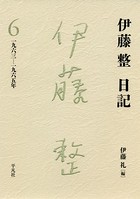 伊藤 整 日記
6
一九六三―一九六五年
伊藤整
伊藤 礼 [編]
平凡社